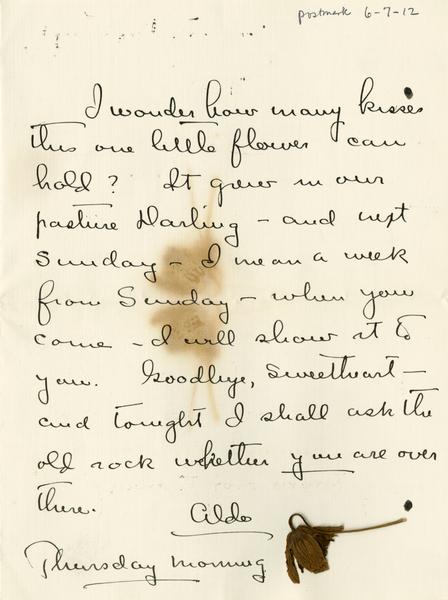 postmark 6-7-12
I wonder how many kisses
this one little flower can
hold? It grew in our
pasture Darling - and next
Sunday - I mean a week
from Sunday - when you
come - I will show it to
you. Goodbye, Sweetheart -
and tonight I shall ask the
old rock whether you are over
there. Aldo
Thursday morning